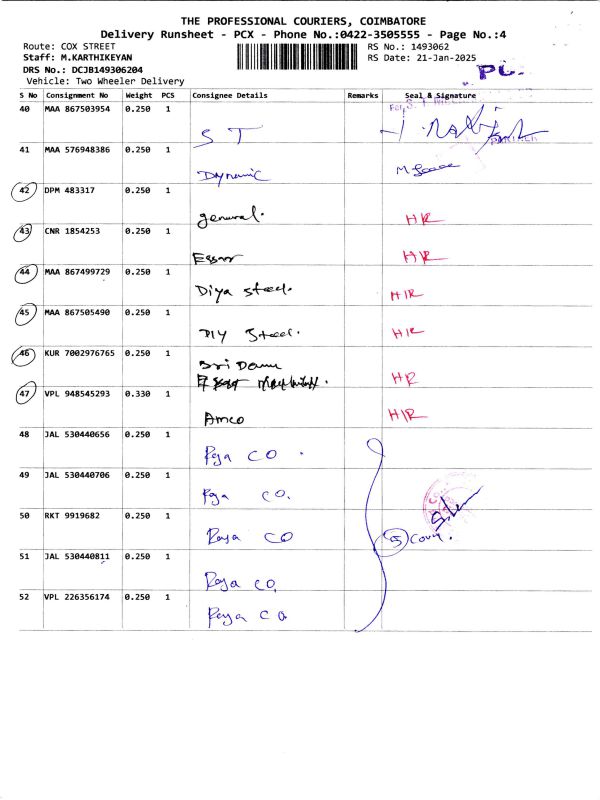 THE PROFESSIONAL COURIERS, COIMBATORE
Delivery Runsheet - PCX - Phone No.:0422-3505555 - Page No.:4
Route: COX STREET RS No.: 1493062
Staff: M.KARTHIKEYAN RS Date: 21-Jan-2025
DRS No.: DCJB149306204
Vehicle: Two Wheeler Delivery
S No Consignment No Weight PCS Consignee Details Remarks Seal & Signature
40 MAA 867503954 0.250 1
S T
41 MAA 576948386 0.250 1
Dynamic
42 DPM 483317 0.250 1
general. HR
43 CNR 1854253 0.250 1
Essar HR
44 MAA 867499729 0.250 1
Diya steel. HR
45 MAA 867505490 0.250 1
DIY Steel. HR
46 KUR 7002976765 0.250 1
Sri
HR
47 VPL 948545293 0.330 1
Amco HR
48 JAL 530440656 0.250 1
Raja CO
49 JAL 530440706 0.250 1
Raja CO.
50 RKT 9919682 0.250 1
Raja CO 5 Couv.
51 JAL 530440811 0.250 1
Raja CO.
52 VPL 226356174 0.250 1
Raja CO